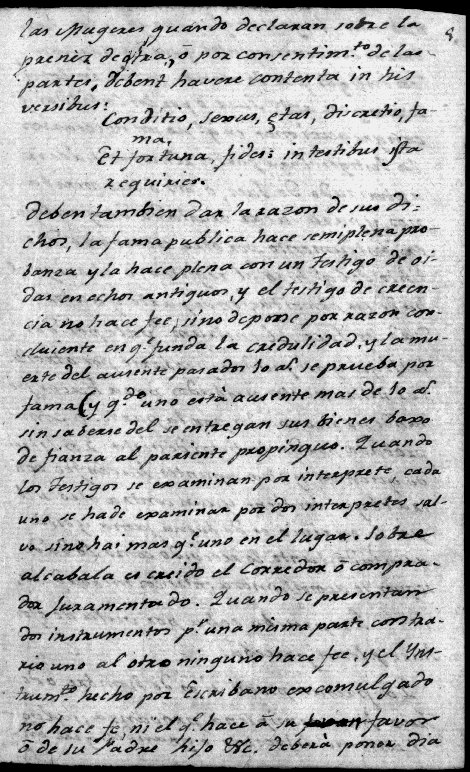 8.
las Mugeres quando declaran sobre la
preñez de otra, ō por consentim.to de las
partes, debent havere contenta in his
versibus:
Conditio, sexus, ętas, discretio, fa
ma,
Et fortuna, fides: in testibus ista
requiries.
deben tambien dar la razon de sus di-
chos, la fama publica hace semiplena pro-
banza y la hace plena con un Testigo de oi-
das en echos antiguos, y el testigo de creen-
cia no hace fee, sino depone por razon con-
cluiente en q.e funda la credulidad, y la mu-
erte del ausente pasados 10 a.s se prueba por
fama (y q.do uno està ausente mas de 10 a.s
sin saberse del se entregan sus bienes baxo
de fianza al pariente propinquo. Quando
los Testigos se examinan por interprete, cada
uno se hade examinar por dos interpretes sal-
vo sino hai mas q.e uno en el lugar. Sobre
alcabala es creido el Corredor ō compra-
dor Juramentado. Quando se presentan
dos instrumentos p.r una misma parte contra-
rio uno al otro ninguno hace fee, y el Yns-
trum.to hecho por Escribano excomulgado
no hace fe, ni el q.e hace ā su favor
ō de su Padre hijo &c. deberà poner dia